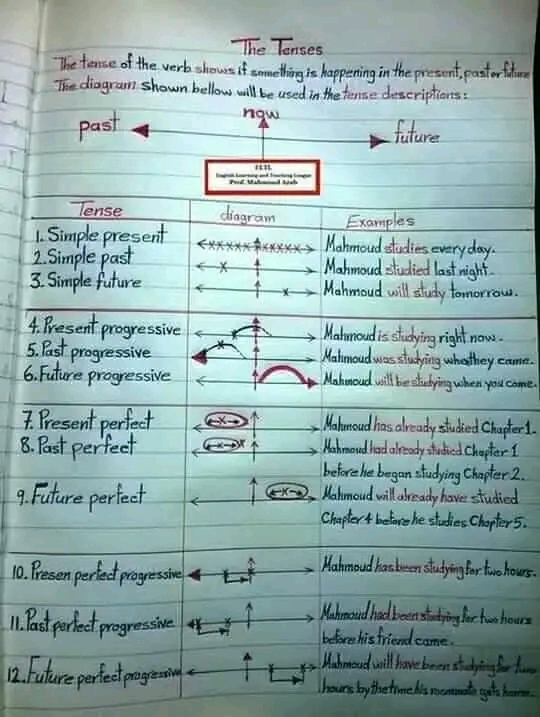 The Tenses
The tense of the verb shows if something is happening in the present, past or future
The diagram shown bellow will be used in the tense descriptions:
now
past
future
ELTL
English Learning and Teaching League
Prof. Mahmoud Arab
Tense diagram Examples
1. Simple present Mahmoud studies every day.
2. Simple past Mahmoud studied last night.
3. Simple future Mahmoud will study tomorrow.
4. Present progressive Mahmoud is studying right now.
5. Past progressive Mahmoud was studying they came.
6. Future progressive Mahmoud will be studying when you come.
7. Present perfect Mahmoud has already studied Chapter 1.
8. Past perfect Mahmoud had already studied Chapter 1
before he began studying Chapter 2.
9. Future perfect Mahmoud will already have studied
Chapter 4 before he studies Chapter 5.
10. Presen perfect progressive Mahmoud has been studying for two hours.
11. Past perfect progressive Mahmoud had been studying for two hours
before his friend came.
12. Future perfect progressive Mahmoud will have been studying for two
hours by the time his roommate gets home.